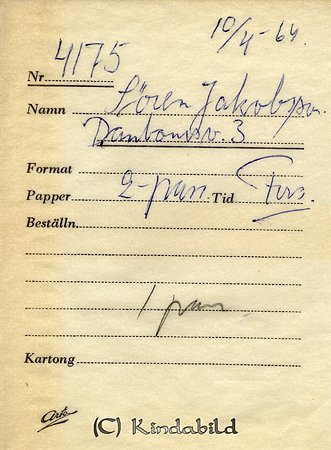 10/4-64
Nr 4175
Namn Sören Jakobson.
Danbomsv. 3
Format
Papper 2-pan. Tid
Beställn.
1 pan
Kartong
Arto
(C) Kindabild